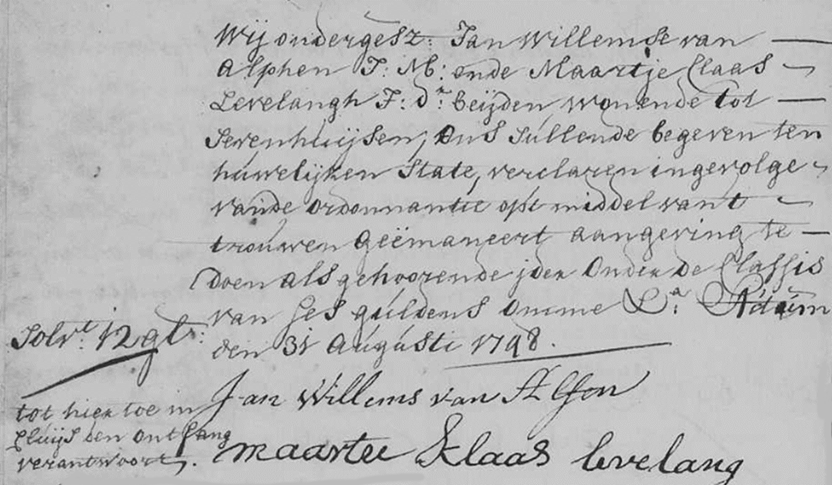 Wij ondergesz: Jan Willemse van
Alphen J: M: ende Maartje Claas
Levelangh J: dr: beijden, wonende tot
Sevenhuijsen, ons Sullende begeven ten
huwelijken State, verclaren ingevolge
vande ordonnantie opt middel vant
trouwen geëmaneert aangeving te
doen als gehoorende ider onder de Classis
van ses guldens omme
den 31 Augusti 1798.
Solvt. 12 gls:
Jan Willems van Alfen
tot hier toe in
ontfang
verantwoort.
maartee klaas levelang